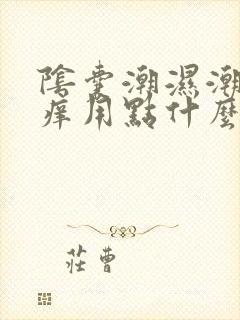 陰囊潮濕潮
痒用點什麼
莊曹